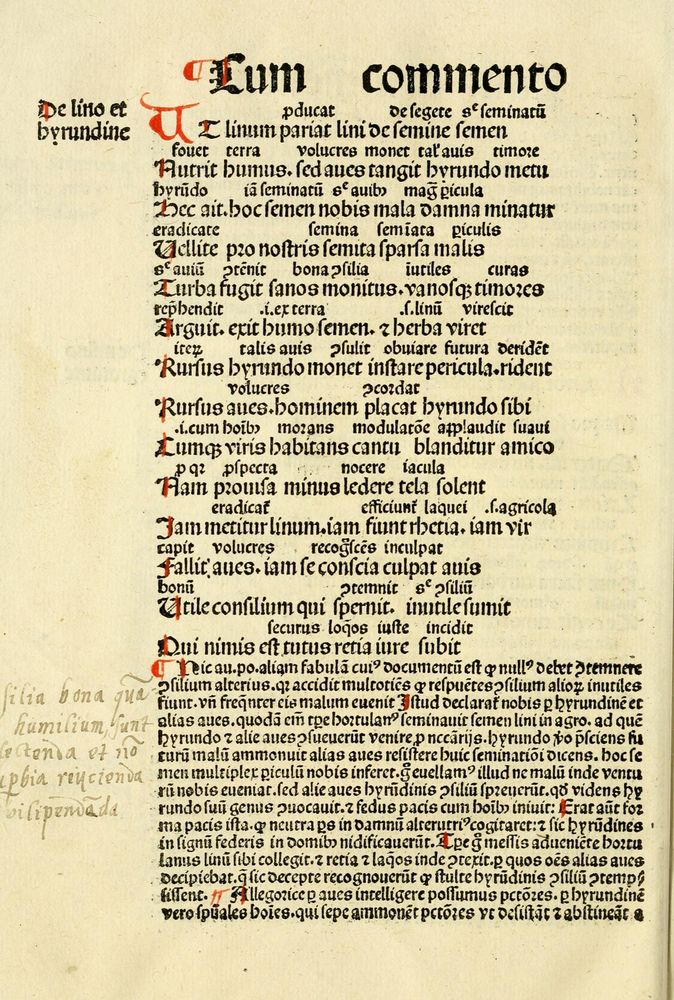 Cum commento
De lino et
hyrundine
ꝓducat de segete sꝫ seminatū
UT linum pariat lini de semine semen
fouet terra volucres monet tal' auis timore
Nutrit humus. sed aues tangit hyrundo metu
hyrūdo iā seminatū sꝫ auibꝰ mag̃ ꝑicula
Hec ait. hoc semen nobis mala damna minatur
eradicate semina semīata ꝑiculis
Uellite pro nostris semita sparsa malis
sꝫ auiū ꝯtēnit bona ꝯsilia īutiles curas
Turba fugit sanos monitus. vanosqꝫ timores
rep̄hendit .i. ex terra .s. linū virescit
Arguit. exit humo semen. ⁊ herba viret
iteꝝ talis auis ꝯsulit obuiare futura deridēt
Rursus hyrundo monet instare pericula. rident
volucres ꝯcordat
Rursus aues. hominem placat hyrundo sibi
.i. cum hoībꝰ morans modulatōe applaudit suaui
Cumqꝫ viris habitans cantu blanditur amico
ꝓspecta nocere iacula
Nam prouisa minus ledere tela solent
eradicat̄ efficiunt̄ laquei .s. agricola
Jam metitur linum. iam fiunt rhetia. iam vir
capit volucres recog̃scēs inculpat
Fallit aues. iam se conscia culpat auis
bonū ꝯtemnit sꝫ ꝯsiliū
Utile consilium qui spernit. inutile sumit
securus loq̄os iuste incidit
Qui nimis est tutus retia iure subit
¶ Hic au. po. aliam fabulā cuiꝰ documentū est ꝙ nullꝰ debet ꝯtemnere
ꝯsilium alterius. qꝛ accidit multotiēs ꝙ respuētes ꝯsilium alioꝝ inutiles
fiunt. vn̄ freq̄nter eis malum euenit Istud declarat̄ nobis ꝑ hyrundinē et
alias aues. quodā em̄ tꝑe hortulanꝰ seminauit semen lini in agro. ad quē
hyrundo ⁊ alie aues ꝯsueuerūt venire, ꝓ nccārijs. hyrundo ꝟo p̄sciens fu
turū malū ammonuit alias aues resistere huic seminatiōi dicens. hoc se
men multiplex ꝑiculū nobis inferet. g̊ euellamꝰ illud ne malū inde ventu
rū nobis eueniat. sed alie aues hyrūdinis ꝯsiliū spreuerūt. qd̓ videns hy
rundo suū genus ꝯuocauit. ⁊ fedus pacis cum hoībꝰ iniuit: Erat aūt for
ma pacis ista. ꝙ neutra ꝑs in damnū alterutriꝰ cogitaret: ⁊ sic hyrūdines
in signū federis in domibꝰ nidificauerūt. Tꝑe g̊ messis adueniēte hortu
lanus linū sibi collegit. ⁊ retia ⁊ laq̄os inde ꝯtexit. ꝑ quos oēs alias aues
decipiebat. q̄ sic decepte recognouerūt ꝙ stulte hyrūdinis ꝯsiliū ꝯtemp
sissent. ¶ Allegorice ꝑ aues intelligere possumus pctōres. ꝑ hyrundinē
vero spūales hoīes. qui sepe ammonēt pctōres vt desistāt ⁊ abstineāt a
silia bona quā
humilium sunt
lectenda et nō
ꝑbia reijcienda
vilipendāda